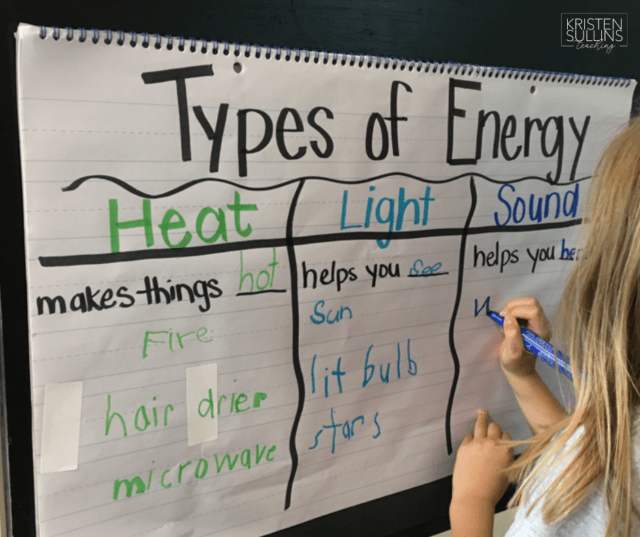 KRISTEN
SULLINS
teaching
Types of Energy
Heat
makes things hot
Fire
hair drier
microwave
Light
helps you see
Sun
lit bulb
stars
Sound
helps you